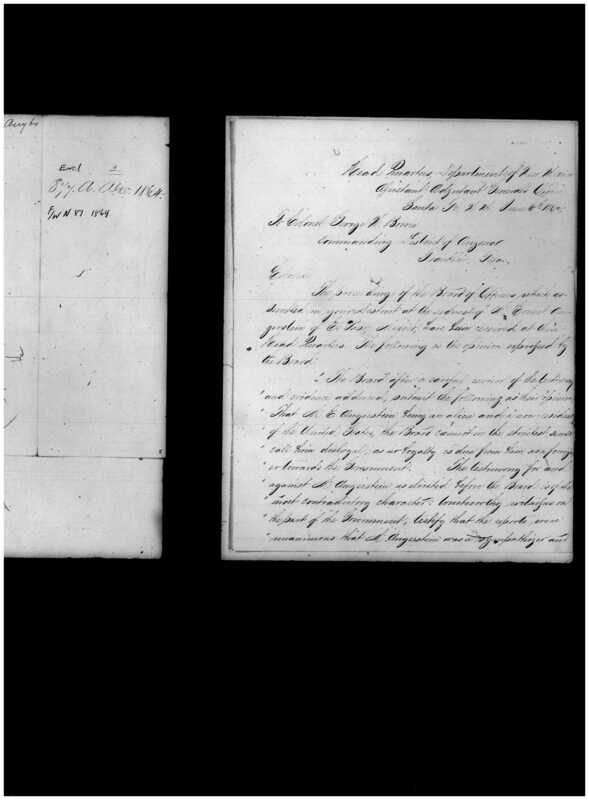 Encl 2
877. A. Dept. 1864.
F/W N 87 1864
Head Quarters, Department of New Mexico
Assistant Adjutant General's Office
Santa Fe, N. M. June
To Colonel George W. Bowie
Commanding District of Arizona
Franklin, Texas
Colonel
The proceedings of the Board of Officers, which as-
sembled in your district at the request of Mr Ernest An-
gerstein of El Paso, Mexico, have been received at these
Head Quarters. The following is the opinion expressed by
the Board:
"The Board after a careful review of the testimony
" and evidence adduced, submit the following as their opinion
That Mr E. Angerstein being an alien and a non-resident
" of the United States, the Board cannot in the strictest sense
" call him disloyal, as no loyalty is due from him as a foreign-
er towards the Government. The testimony for and
against Mr Angerstein as elicited before the Board is of the
" most contradictory character. Trustworthy witnesses on
" the part of the Government, testify that the reports were
" unanimous that Mr Angerstein was a sympathizer and